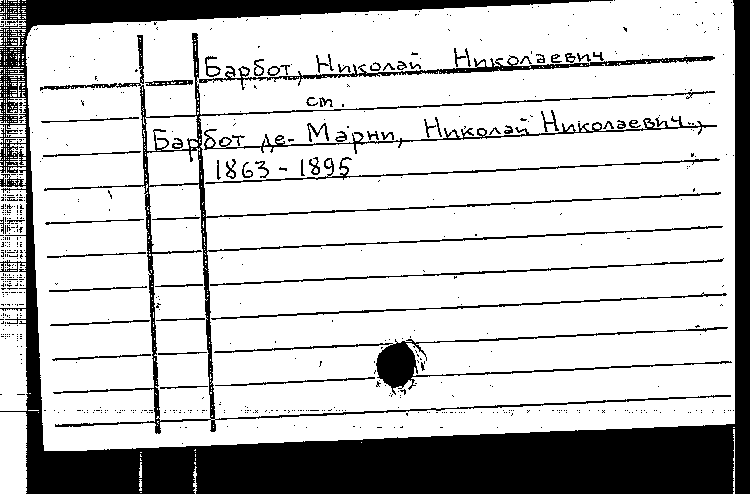 Барбот, Николай Николаевич
см.
Барбот де-Марни, Николай Николаевич,
1863-1895